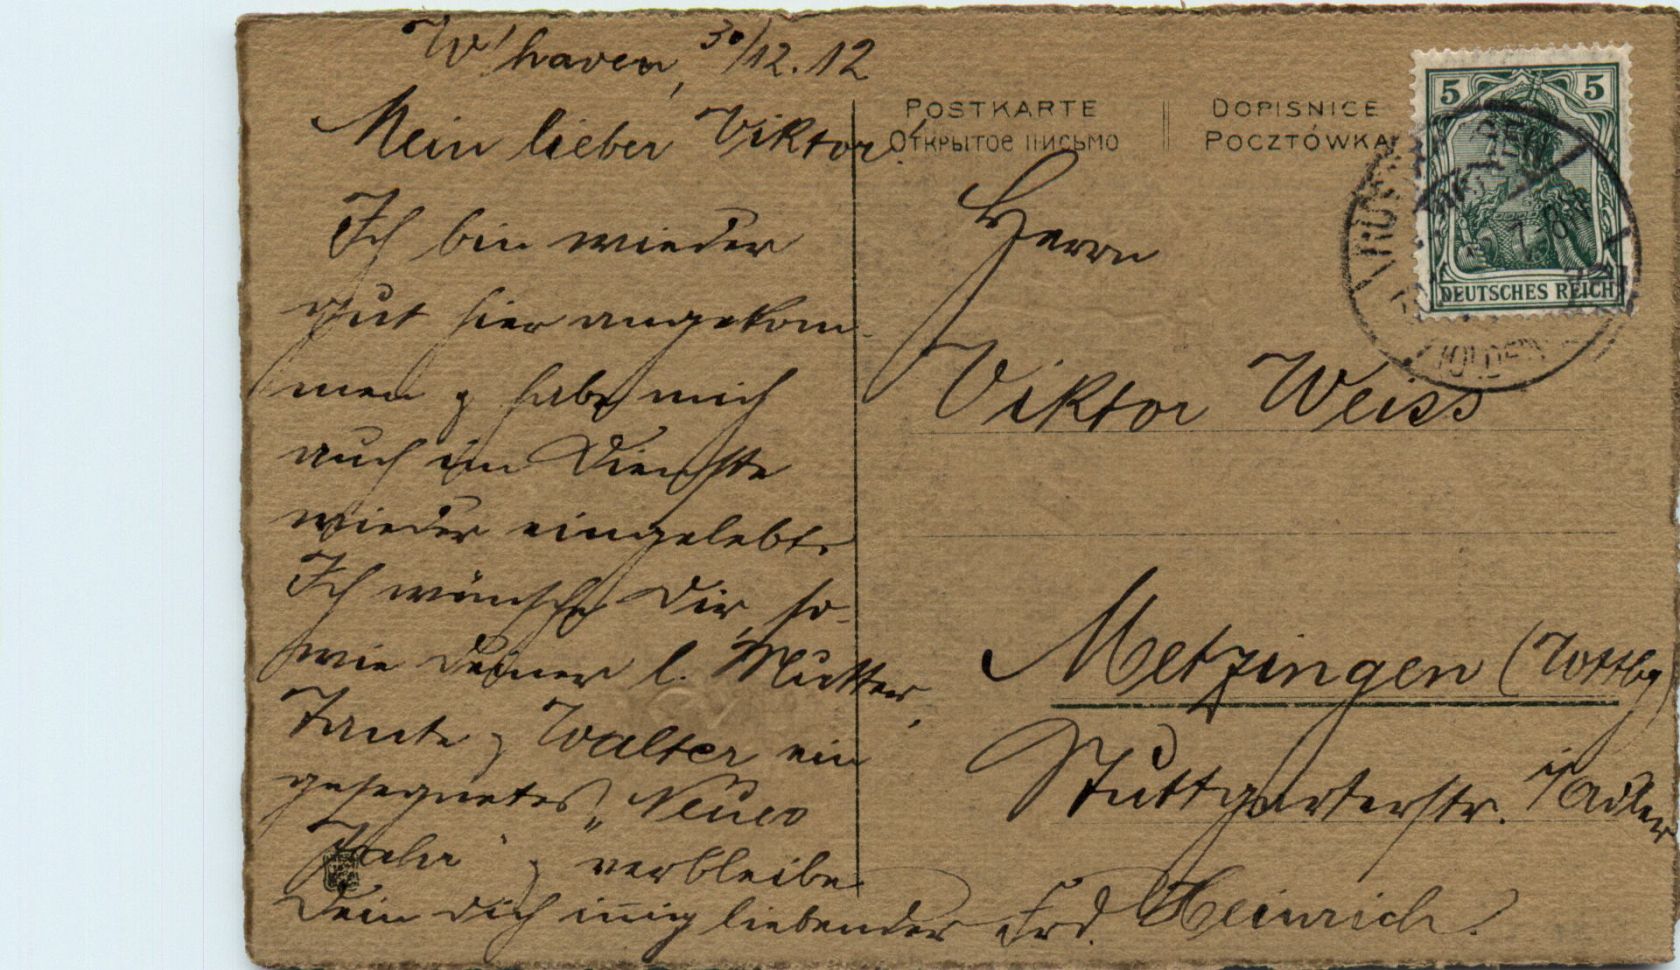 W'haven, 30/12.12
Mein lieber Viktor!
Ich bin wieder
gut hier angekom-
men & habe mich
auch im Dienste
wieder eingelebt.
Ich wünsche Dir, so-
wie Deiner l. Mutter,
Tante & Walter ein
gesegnetes „Neues
Jahr" & verbleibe
Dein Dich innig liebender Frd. Heinrich.
POSTKARTE
DOPISNICE
Открытое письмо
POCZTÓWKA
5 5
DEUTSCHES REICH
7-8
Herrn
Viktor Weiss
Metzingen (Wttbg)
Stuttgarterstr. i/Adler